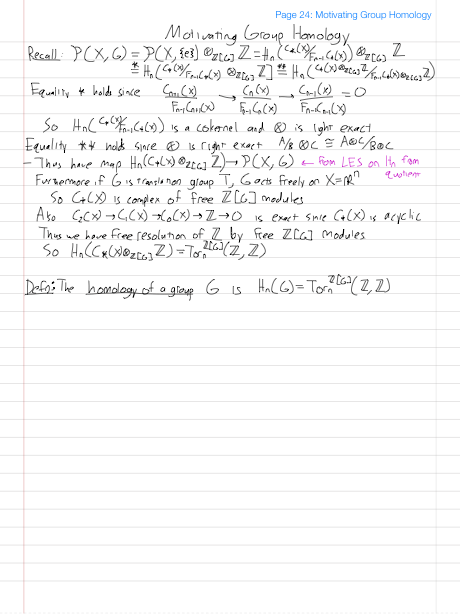 Page 24: Motivating Group Homology
Motivating Group Homology
Recall: P(X, G) = P(X, {e}) ⊗_{Z[G]} Z = H_n(C_*(X)/F_{n-1}C_*(X)) ⊗_{Z[G]} Z
*= H_n[C_*(X)/F_{n-1}C_*(X) ⊗_{Z[G]} Z] **= H_n(C_*(X)⊗_{Z[G]}Z/F_{n-1}C_*(X)⊗_{Z[G]}Z)
Equality * holds since C_{n+1}(X)/F_{n-1}C_{n+1}(X) → C_n(X)/F_{n-1}C_n(X) → C_{n-1}(X)/F_{n-1}C_{n-1}(X) = 0
So H_n(C_*(X)/F_{n-1}C_*(X)) is a cokernel and ⊗ is right exact
Equality ** holds since ⊗ is right exact A/B ⊗C ≅ A⊗C/B⊗C
- Thus have map H_n(C_*(X)⊗_{Z[G]} Z) → P(X, G) ← from LES on H_n from quotient
Furthermore if G is translation group T, G acts freely on X=R^n
So C_*(X) is complex of free Z[G] modules
Also C_2(X)→C_1(X)→C_0(X)→Z→0 is exact since C_*(X) is acyclic
Thus we have free resolution of Z by free Z[G] modules
So H_n(C_*(X)⊗_{Z[G]}Z) = Tor_n^{Z[G]}(Z, Z)
Defn: The homology of a group G is H_n(G) = Tor_n^{Z[G]}(Z, Z)